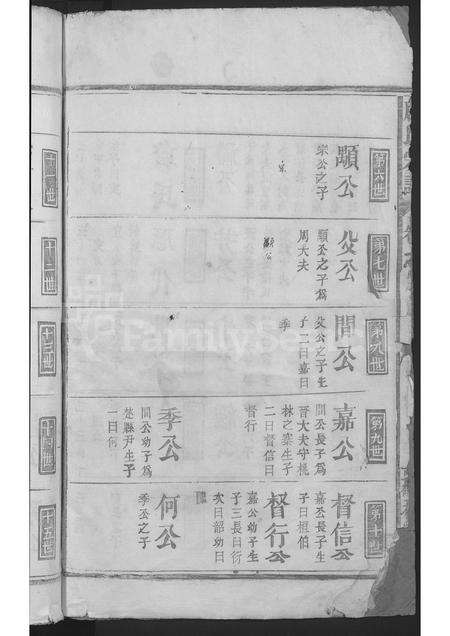 第六世
顯公
宗公之子
第七世
父公
顯公之子為
周大夫
第九世
間公
父公之子生
子二曰嘉曰
季
第九世
嘉公
間公長子為
晉大夫守桃
林之塞生子
二曰督信曰
督行
季公
間公幼子為
楚縣尹生子
一曰何
第十世
督信公
嘉公長子生
子曰桓伯
督行公
嘉公幼子生
子三長曰衍
次曰韶幼曰
何公
季公之子
十二世
十三世
十四世
十五世
FamilySearch